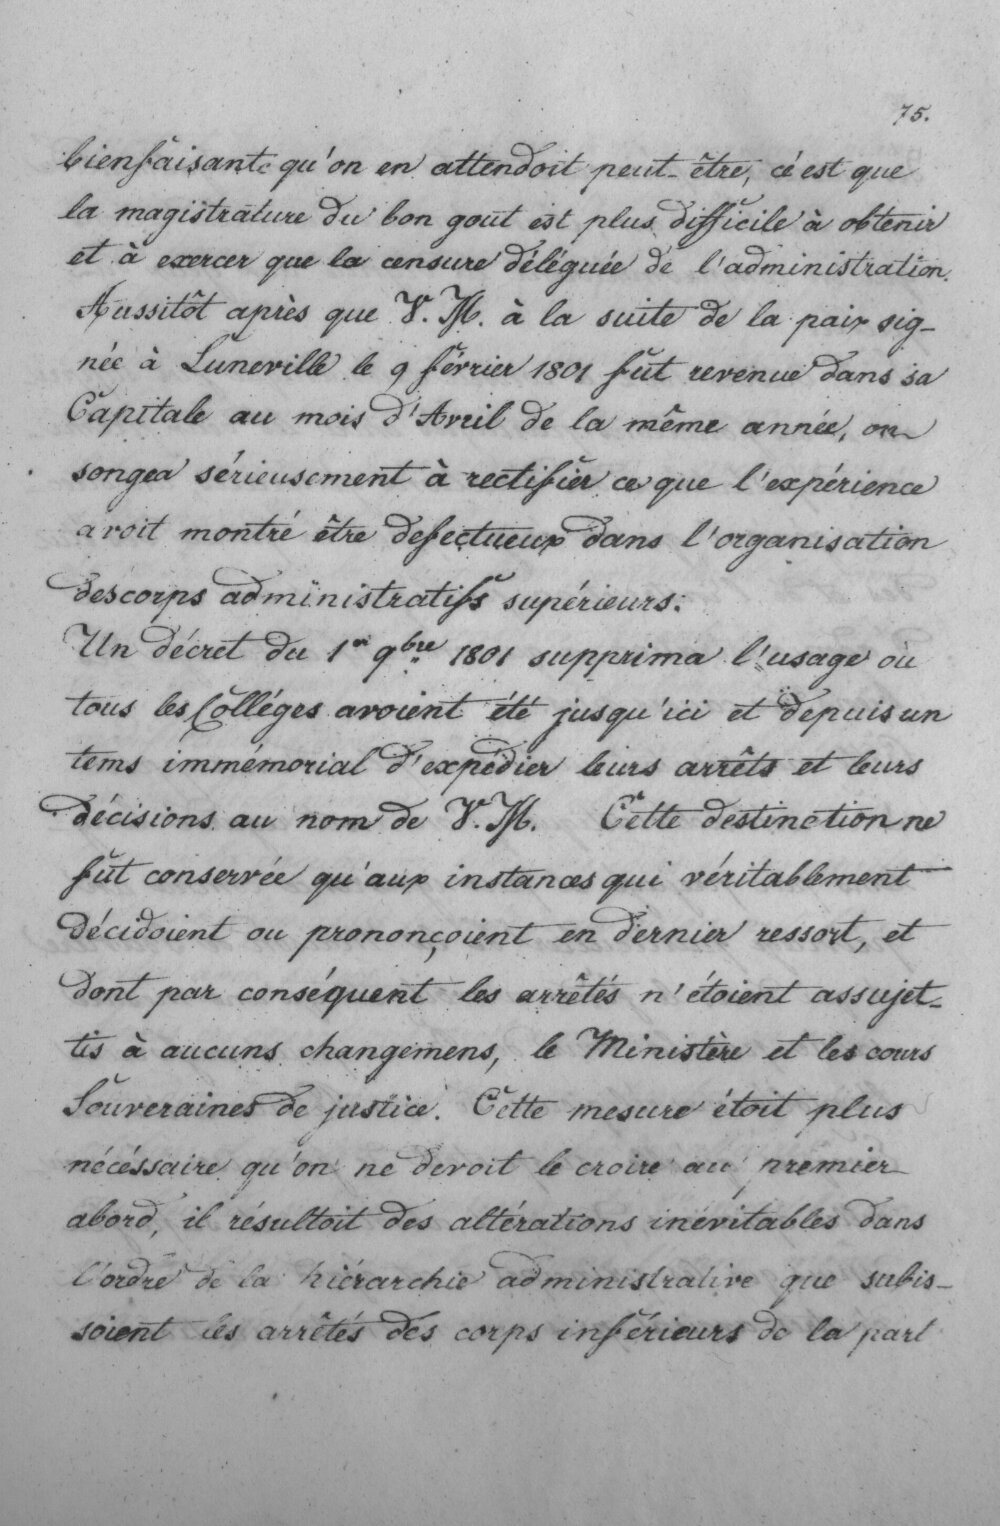 75.
bienfaisante qu'on en attendoit peut-être, c'est que
la magistrature du bon gout est plus difficile à obtenir
et à exercer que la censure déléguée de l'administration.
Aussitôt après que V. M. à la suite de la paix sig-
née à Luneville le 9 février 1801 fut revenue dans sa
Capitale au mois d'Avril de la même année, on
songea sérieusement à rectifier ce que l'expérience
avoit montré être defectueux dans l'organisation
des corps administratifs supérieurs.
Un décret du 1er 9bre 1801 supprima l'usage où
tous les Colléges avoient été jusqu'ici et depuis un
tems immémorial d'expédier leurs arrêts et leurs
décisions au nom de V. M. Cette destinction ne
fut conservée qu'aux instances qui véritablement
décidoient ou prononçoient en dernier ressort, et
dont par conséquent les arrêtés n'étoient assujet-
tis à aucuns changemens, le Ministère et les cours
Souveraines de justice. Cette mesure étoit plus
nécéssaire qu'on ne devoit le croire au premier
abord, il résultoit des altérations inévitables dans
l'ordre de la hiérarchie administrative que subis-
soient les arrêtés des corps inférieurs de la part